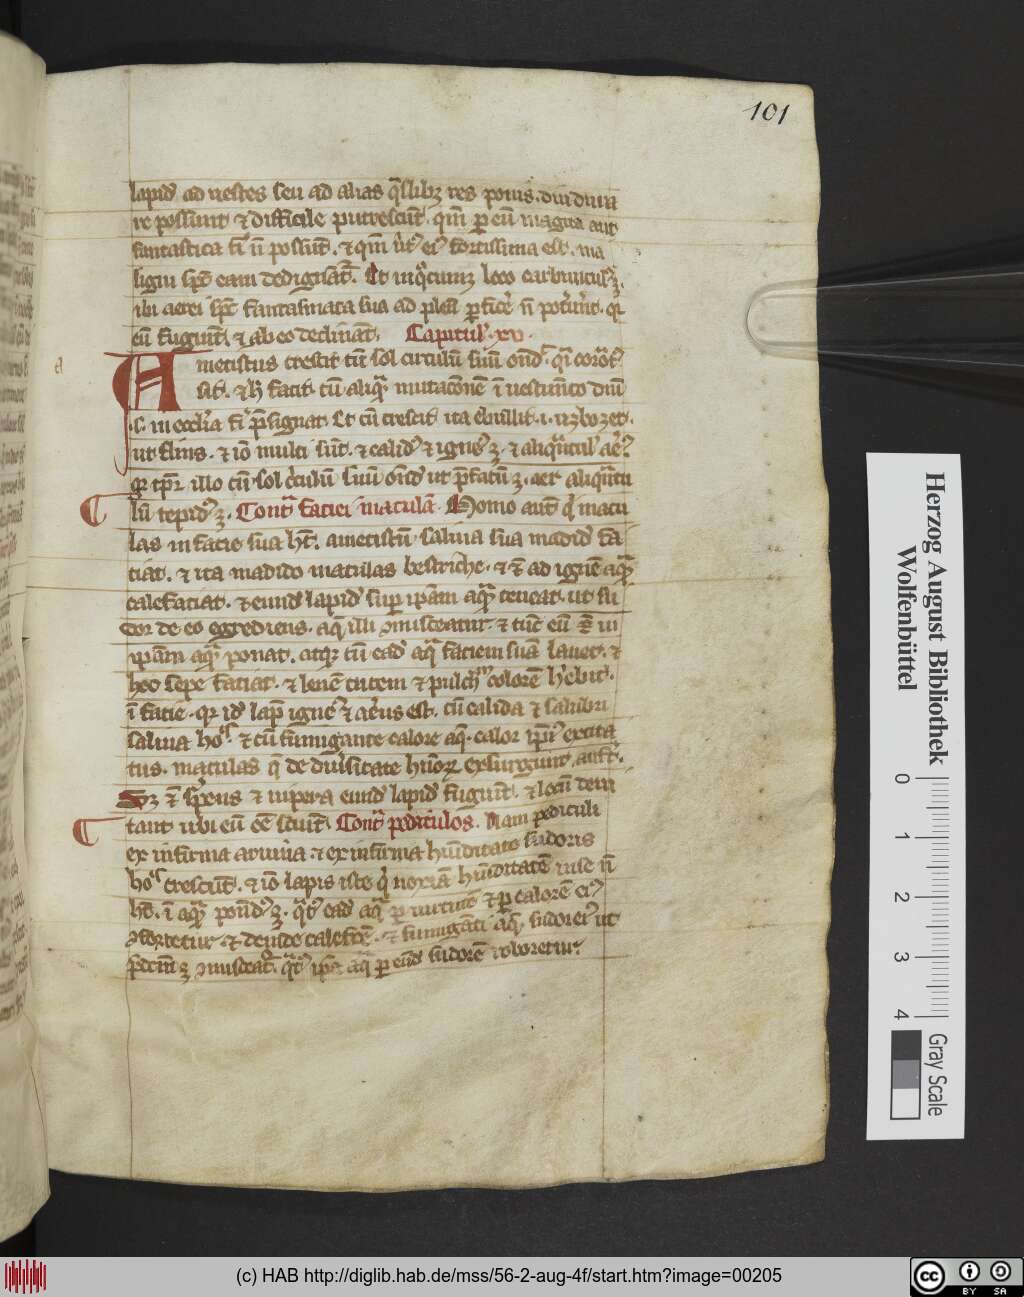 101
lapid ad uestes seu ad alias q̄slibꝫ res ponis. diu dura
re possunt ⁊ difficile putrescūt. qm̄ ꝑ eū magica aut
fantastica fi n̄ possūt. ⁊ qm̄ uͥt eiꝰ fortissima est. ma
ligni spc̄ eam dedignāt᷑. Et in qͦcumꝫ loco carbunculꝰ ꝫ.
ibi aerei spc̄ fantasmata sua ad plenū ꝑficͤ n̄ potͥnt. qꝛ
eū fugiūt ⁊ ab eo declināt. Capitulꝰ. xv.
Ametistus crescit cū sol circulū suū ond. qͣi coroͣtꝰ
sit. ⁊ h̄ facit cū aliqͣ mutacōnē ī uestimēto dn̄i
.s. in ecclīa fi p̄signat. Et cū crescit ita ebullit .i. uzbozet.
ut flins. ⁊ iō multi sūt. ⁊ calidꝰ ⁊ igneꝰ ꝫ. ⁊ aliqͣntulū aeͥꝰ
qꝛ tp̄r illo cū sol cͥculū suū ond ut p̄fatū ꝫ. aer aliqͣntu
lū tepidꝰ ꝫ. Contͣ faciei maculā. Homo aut̄ qͥ macu
las in facie sua ht̄. ametistū saliua sua madid fa
ciat. ⁊ ita madido maculas bestriche. ⁊ ⁊ ad ignē aqͣ
calefaciat. ⁊ eund lapid suꝑ ipam aqͣ teneat. ut su
dor de eo egrediens. aq̄ illi ꝯmisceatur. ⁊ tūc eū ⁊ in
ipam aqͣ ponat. atqꝛ cū ead aq̄ faciem suā lauet. ⁊
hec sepe faciat. ⁊ lenē cutem ⁊ pulchͬ colorē hͤbit
ī facie. qꝛ idꝰ lap̄ igneꝰ ⁊ aeͥus est. cū calida ⁊ salubri
saliua hoīs. ⁊ cū fumigante calore aq̄. calor ipiꝰ excita
tus. maculas q̄ de diuͥsitate humoꝝ exsurgunt aufert.
Sꝫ ⁊ sͥpens ⁊ uipera eund lapid fugiūt. ⁊ locū deui
tant ubi eū eē sciūt. Contͣ pediculos. Nam pediculi
ex infirma aruina ⁊ ex infirma humiditate sudoris
hoīs crescūt. ⁊ iō lapis iste qͥ noxiā humiditatē in se n̄
ht̄. ī aqͣ pondꝰ ꝫ. qͣtꝰ ead aq̄ ꝑ uirtutē ⁊ ꝑ calorē eiꝰ
ꝯfortetur. ⁊ deinde calefcē. ⁊ fumigāti aq̄ sudor eiꝰ ut
p̄dcm̄ ꝫ ꝯmisceat᷑. qͣtꝰ ipa aq̄ ꝑ eund sudorē roboretur.
Herzog August Bibliothek
Wolfenbüttel
0 1 2 3 4
Gray Scale
(c) HAB http://diglib.hab.de/mss/56-2-aug-4f/start.htm?image=00205
cc BY SA